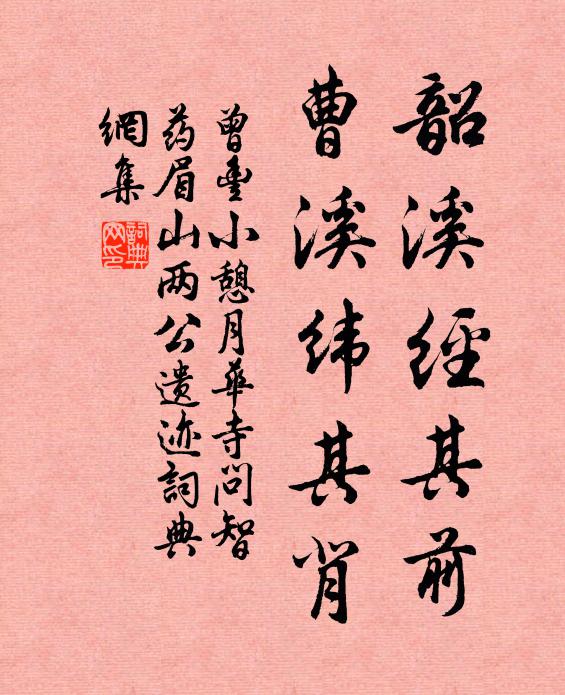 韶溪經其前
曹溪纬其背
曾豐小憩月華寺问智
药眉山两公遗迹詞典
網集
詞典網印